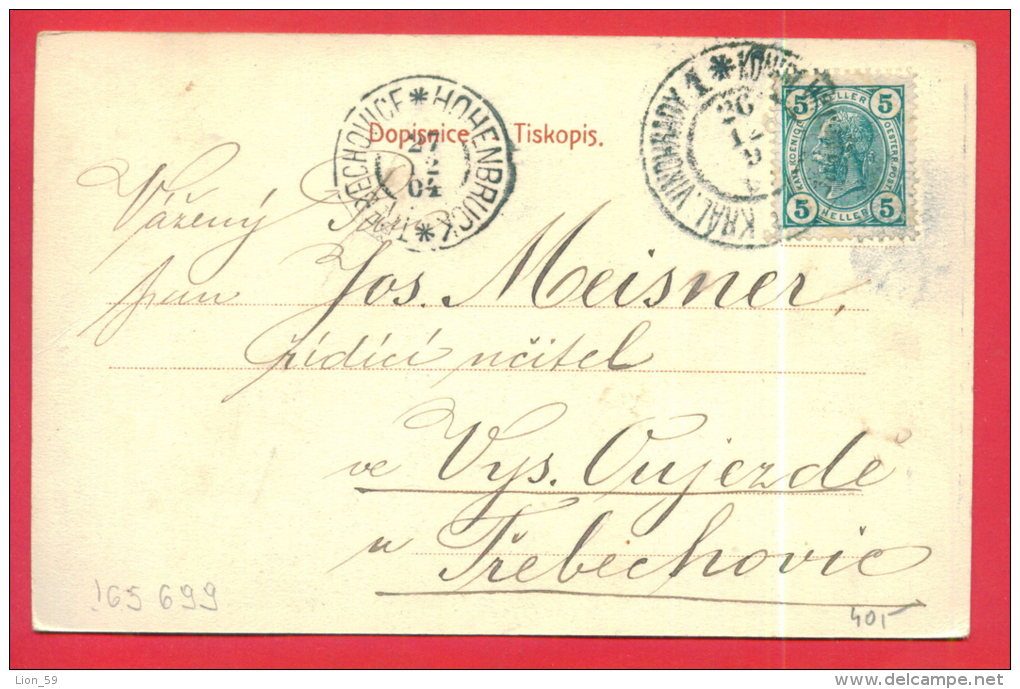 Dopisnice Tiskopis.
TŘEBECHOVICE * HOHENBRUCK *
27
04
KRÁL. VINOHRADY 1 *
26
12
5 HELLER 5
KAIS. KOENIGL. OESTERR. POST
5 HELLER 5
Vážený
pan Jos. Meisner,
řídící učitel
ve Vys. Oujezdě
u Třebechovic
165 699
40,-
Lion_59
delcampe.net